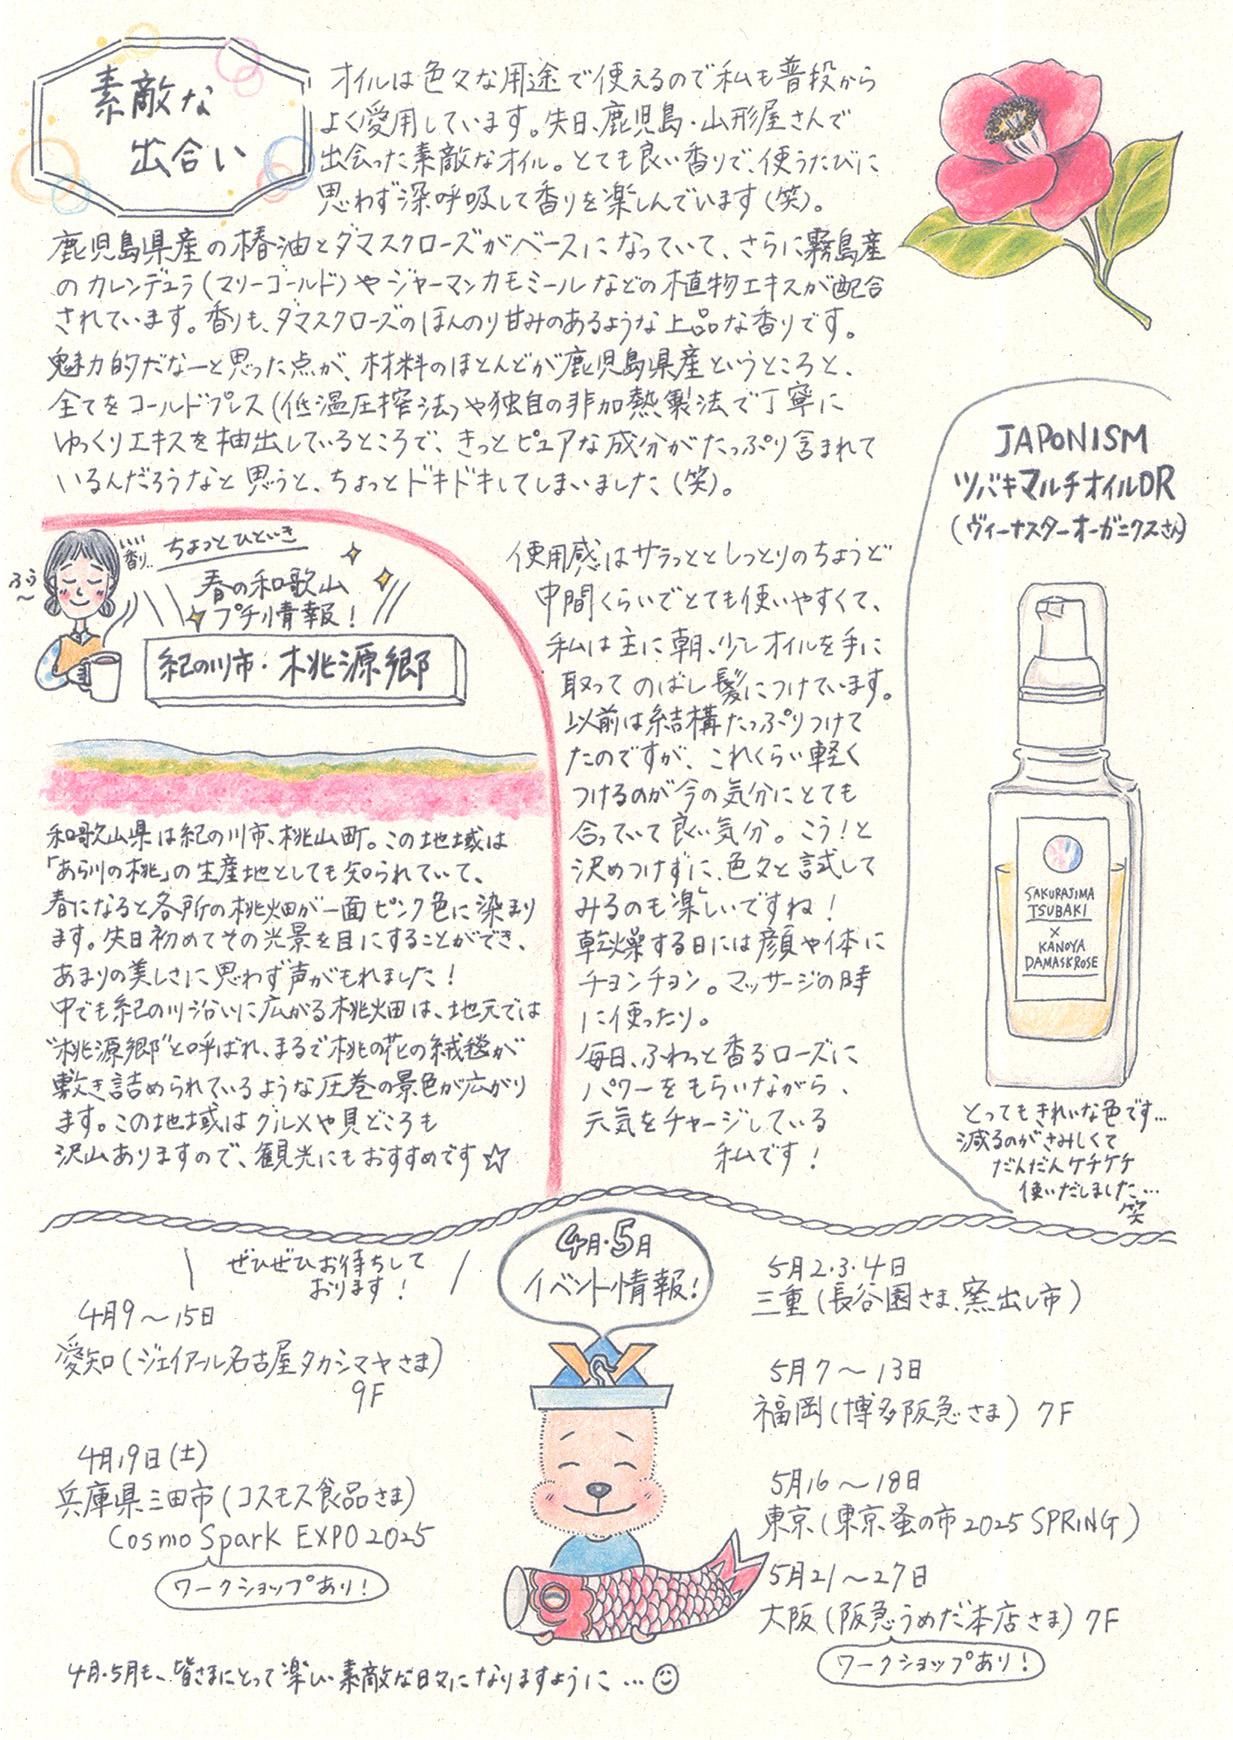 素敵な
出合い
オイルは色々な用途で使えるので私も普段から
よく愛用しています。先日、鹿児島・山形屋さんで
出会った素敵なオイル。とても良い香りで、使うたびに
思わず深呼吸して香りを楽しんでいます(笑)。
鹿児島県産の椿油とダマスクローズがベースになっていて、さらに霧島産
のカレンデュラ(マリーゴールド)やジャーマンカモミールなどの植物エキスが配合
されています。香りも、ダマスクローズのほんのり甘みのあるような上品な香りです。
魅力的だなーと思った点が、材料のほとんどが鹿児島県産というところと、
全てをコールドプレス(低温圧搾法)や独自の非加熱製法で丁寧に
ゆっくりエキスを抽出しているところで、きっとピュアな成分がたっぷり含まれて
いるんだろうなと思うと、ちょっとドキドキしてしまいました(笑)。
JAPONISM
ツバキマルチオイルDR
(ヴィーナスターオーガニクスさん)
SAKURAJIMA
TSUBAKI
×
KANOYA
DAMASKROSE
とってもきれいな色です…
減るのがさみしくて
だんだんケチケチ
使いだしました…
笑
使用感はサラっととしっとりのちょうど
中間くらいでとても使いやすくて、
私は主に朝、少しオイルを手に
取ってのばし髪につけています。
以前は結構たっぷりつけて
たのですが、これくらい軽く
つけるのが今の気分にとても
合っていて良い気分。こう!と
決めつけずに、色々と試して
みるのも楽しいですね!
乾燥する日には顔や体に
チョンチョン。マッサージの時
に使ったり。
毎日、ふわっと香るローズに
パワーをもらいながら、
元気をチャージしている
私です!
ふぅ〜
いい香り..
ちょっとひといき
春の和歌山
プチ情報!
紀の川市・桃源郷
和歌山県は紀の川市、桃山町。この地域は
「あら川の桃」の生産地としても知られていて、
春になると各所の桃畑が一面ピンク色に染まり
ます。先日初めてその光景を目にすることができ、
あまりの美しさに思わず声がもれました!
中でも紀の川沿いに広がる桃畑は、地元では
"桃源郷"と呼ばれ、まるで桃の花の絨毯が
敷き詰められているような圧巻の景色が広がり
ます。この地域はグルメや見どころも
沢山ありますので、観光にもおすすめです☆
4月・5月
イベント情報!
ぜひぜひお待ちして
おります!
4月9〜15日
愛知(ジェイアール名古屋タカシマヤさま)
9F
4月19日(土)
兵庫県三田市(コスモス食品さま)
Cosmo Spark EXPO 2025
ワークショップあり!
5月2・3・4日
三重(長谷園さま、窯出し市)
5月7〜13日
福岡(博多阪急さま)7F
5月16〜18日
東京(東京蚤の市2025 SPRING)
5月21〜27日
大阪(阪急うめだ本店さま)7F
ワークショップあり!
4月・5月も、皆さまにとって楽しい素敵な日々になりますように…☺